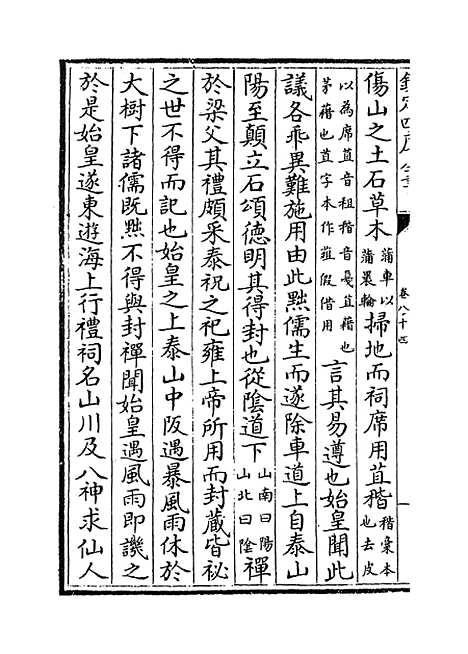 欽定四庫全書
卷八十四
傷山之土石草木蒲車以蒲裹輪掃地而祠席用苴稭稭稾本也去皮
以為席苴音租稭音戛苴藉也茅藉也苴字本作蒩假借用言其易遵也始皇聞此
議各乖異難施用由此黜儒生而遂除車道上自泰山
陽至顛立石頌德明其得封也從陰道下山南曰陽山北曰陰禪
於梁父其禮頗采泰祝之祀雍上帝所用而封藏皆祕
之世不得而記也始皇之上泰山中阪遇暴風雨休於
大樹下諸儒既黜不得與封禪聞始皇遇風雨即譏之
於是始皇遂東遊海上行禮祠名山川及八神求仙人